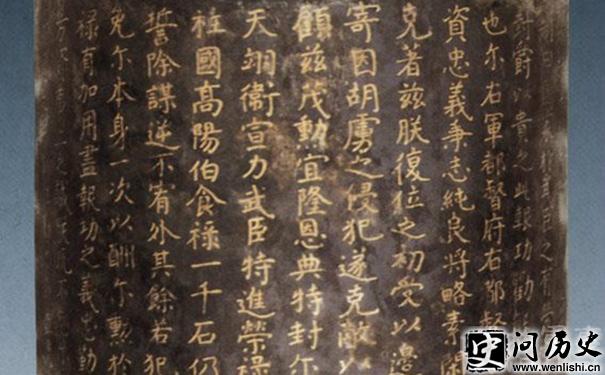 爵以貴之此報功勸
也尔右軍都督府右都督
資忠義秉志純良將略素閑
克著茲朕復位之初受以邊
寄因胡虜之侵犯遂克敵以
顧茲茂勳宜隆恩典特封尔
天翊衛宣力武臣特進榮祿
柱國高陽伯食祿一千石仍
誓除謀逆不宥外其餘若犯
免尔本身一次以酬尔勳於
祿有加用盡報功之義忠勤
问历史
www.wenlishi.cn